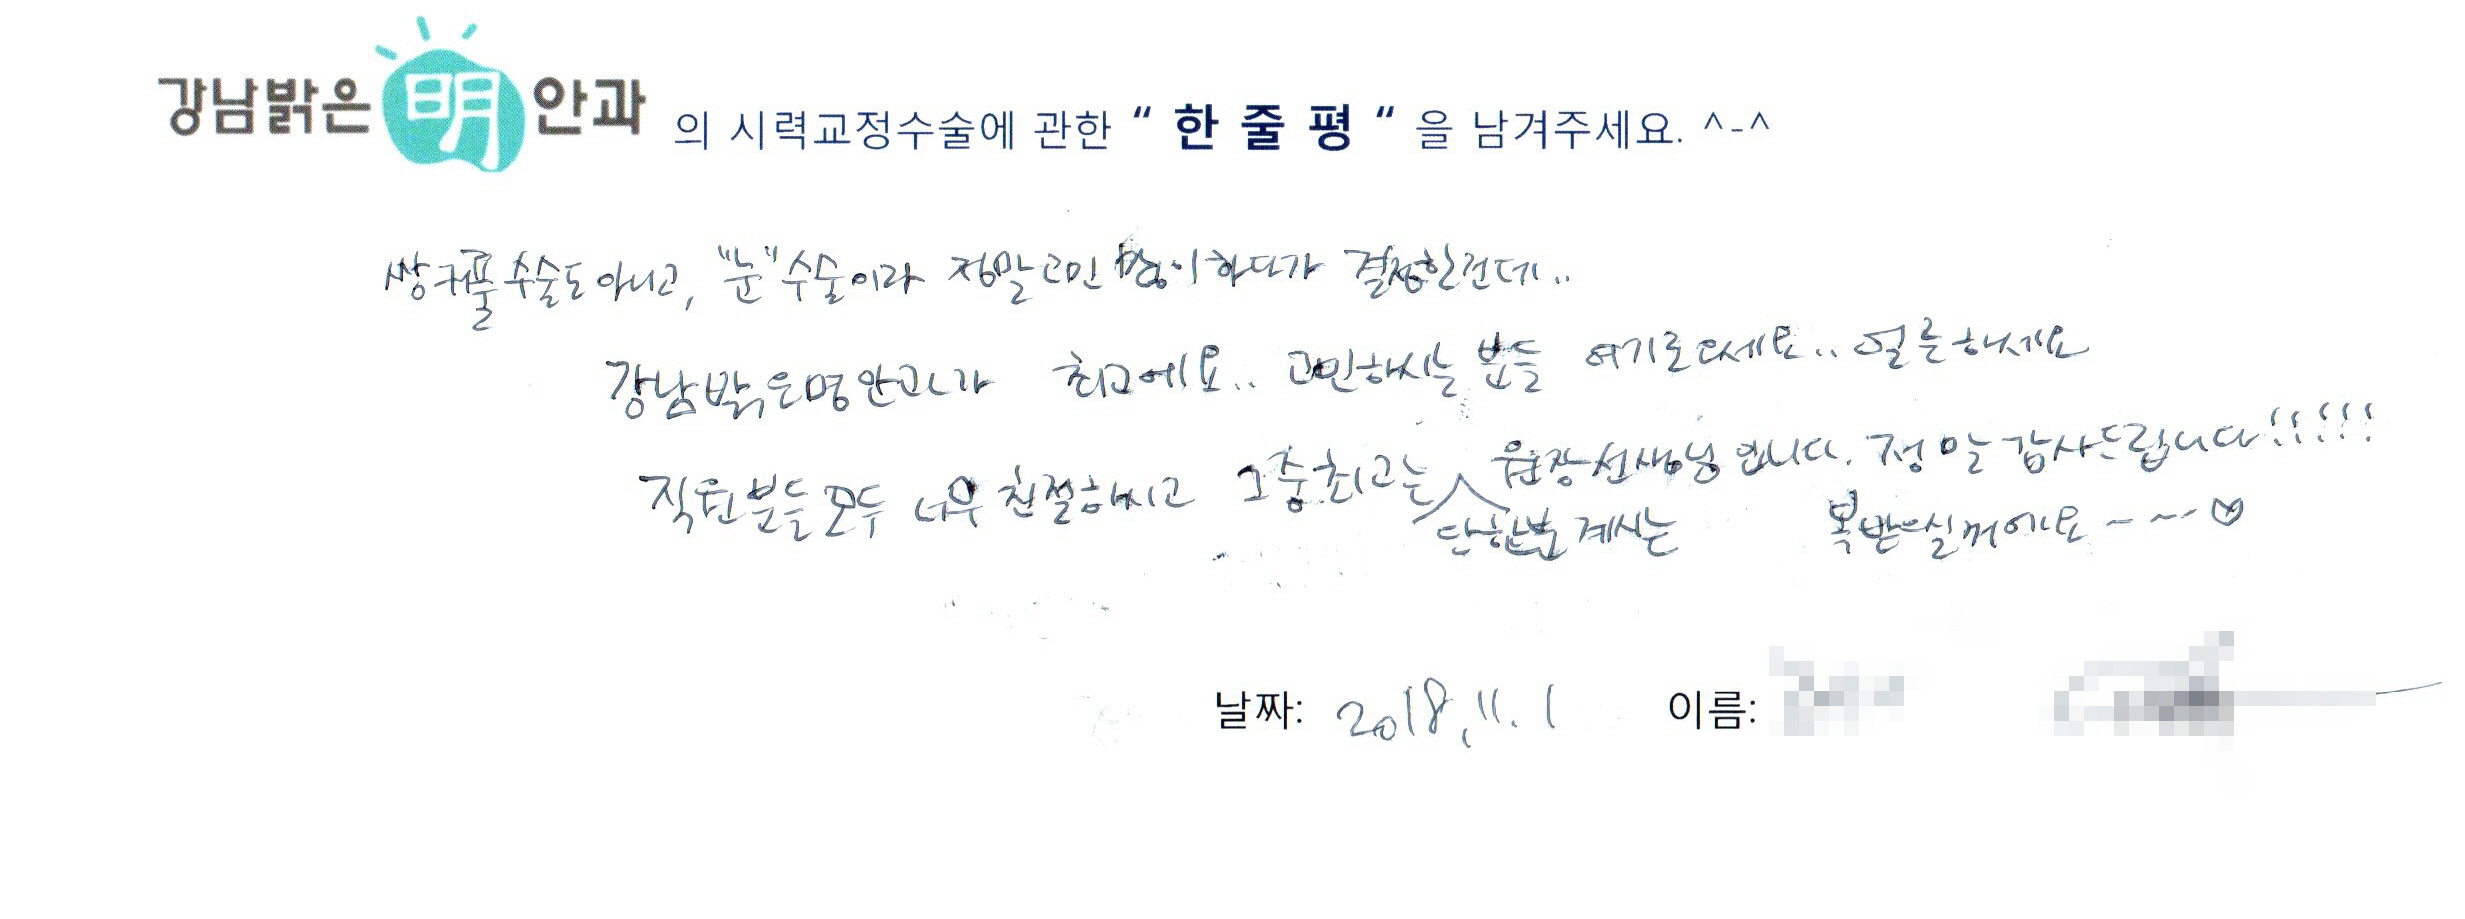 강남밝은明안과 의 시력교정수술에 관한 “ 한 줄 평 “ 을 남겨주세요. ^-^
쌍커풀 수술도 아니고, "눈"수술이라 정말 고민 많이 하다가 결정한건데..
강남밝은명안과가 최고에요.. 고민하시는 분들 여기로 오세요.. 얼른하세요
직원분들 모두 너무 친절하시고 그중 최고는 단한분 계시는 원장선생님 입니다. 정말 감사드립니다!!!!!
복받으실꺼에요~~~♡
날짜: 2018.11.1 이름: